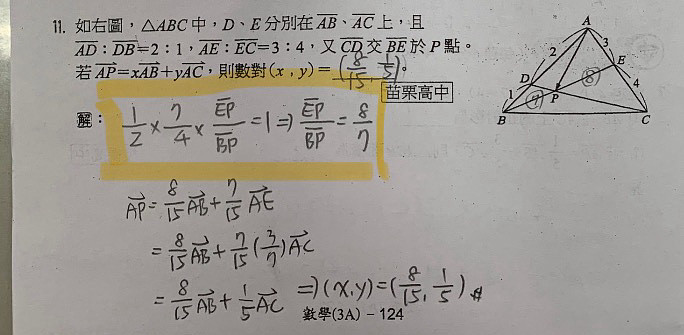 11. 如右圖，△ABC 中，D、E 分別在 AB、AC 上，且
AD：DB=2：1，AE：EC=3：4，又 CD 交 BE 於 P 點。
若 AP=xAB+yAC，則數對(x, y)= (8/15, 1/5)。
苗栗高中
解：1/2 × 7/4 × EP/BP = 1 ⇒ EP/BP = 8/7
AP = 8/15 AB + 7/15 AE
= 8/15 AB + 7/15 (3/7) AC
= 8/15 AB + 1/5 AC ⇒ (x, y) = (8/15, 1/5) #
數學(3A) – 124
A
2
3
D
E
8
1
7
P
4
B
C